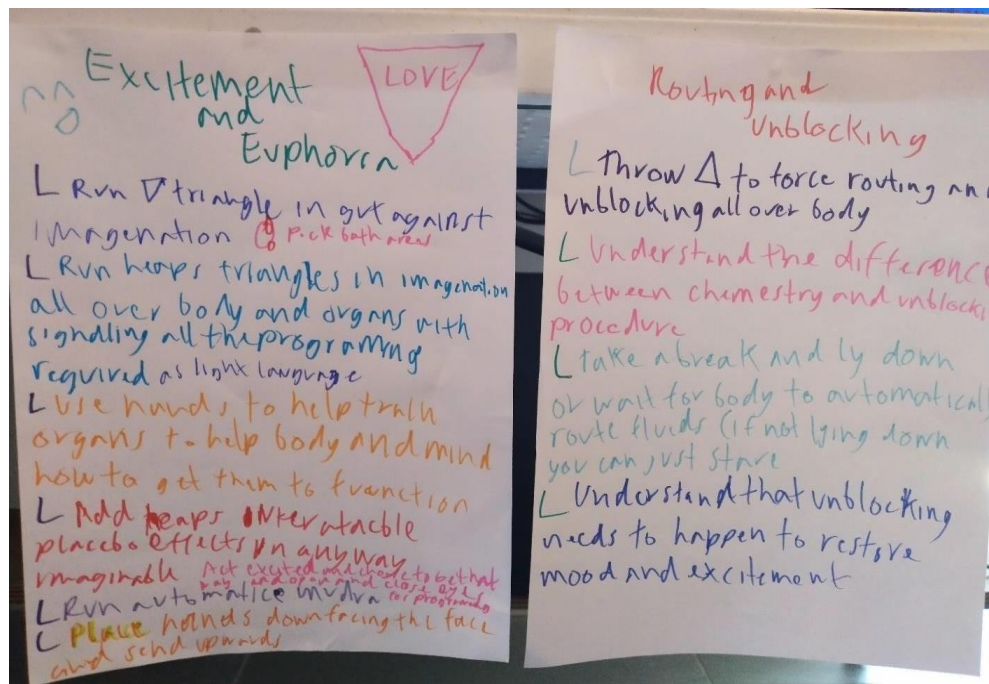 Excitement
and
Euphoria
LOVE
L Run ∇ triangle in gut against
imagenation pick both areas
L Run heaps triangles in imagenation
all over body and organs with
signalling all the programing
required as light language
L use hands to help train
organs to help body and mind
how to get them to function
L Add heaps
placebo effects in any way
imaginable Act excited and choose to be that
way and open and close eyes
for programing
L Run automatice mudra
L PLACE hands down facing the face
and send upwards
Routing and
unblocking
L Throw Δ to force routing an
unblocking all over body
L Understand the difference
between chemestry and unblocki
procedure
L take a break and ly down
or wait for body to automatical
route fluids (if not lying down
you can just stare
L Understand that unblocking
needs to happen to restore
mood and excitement